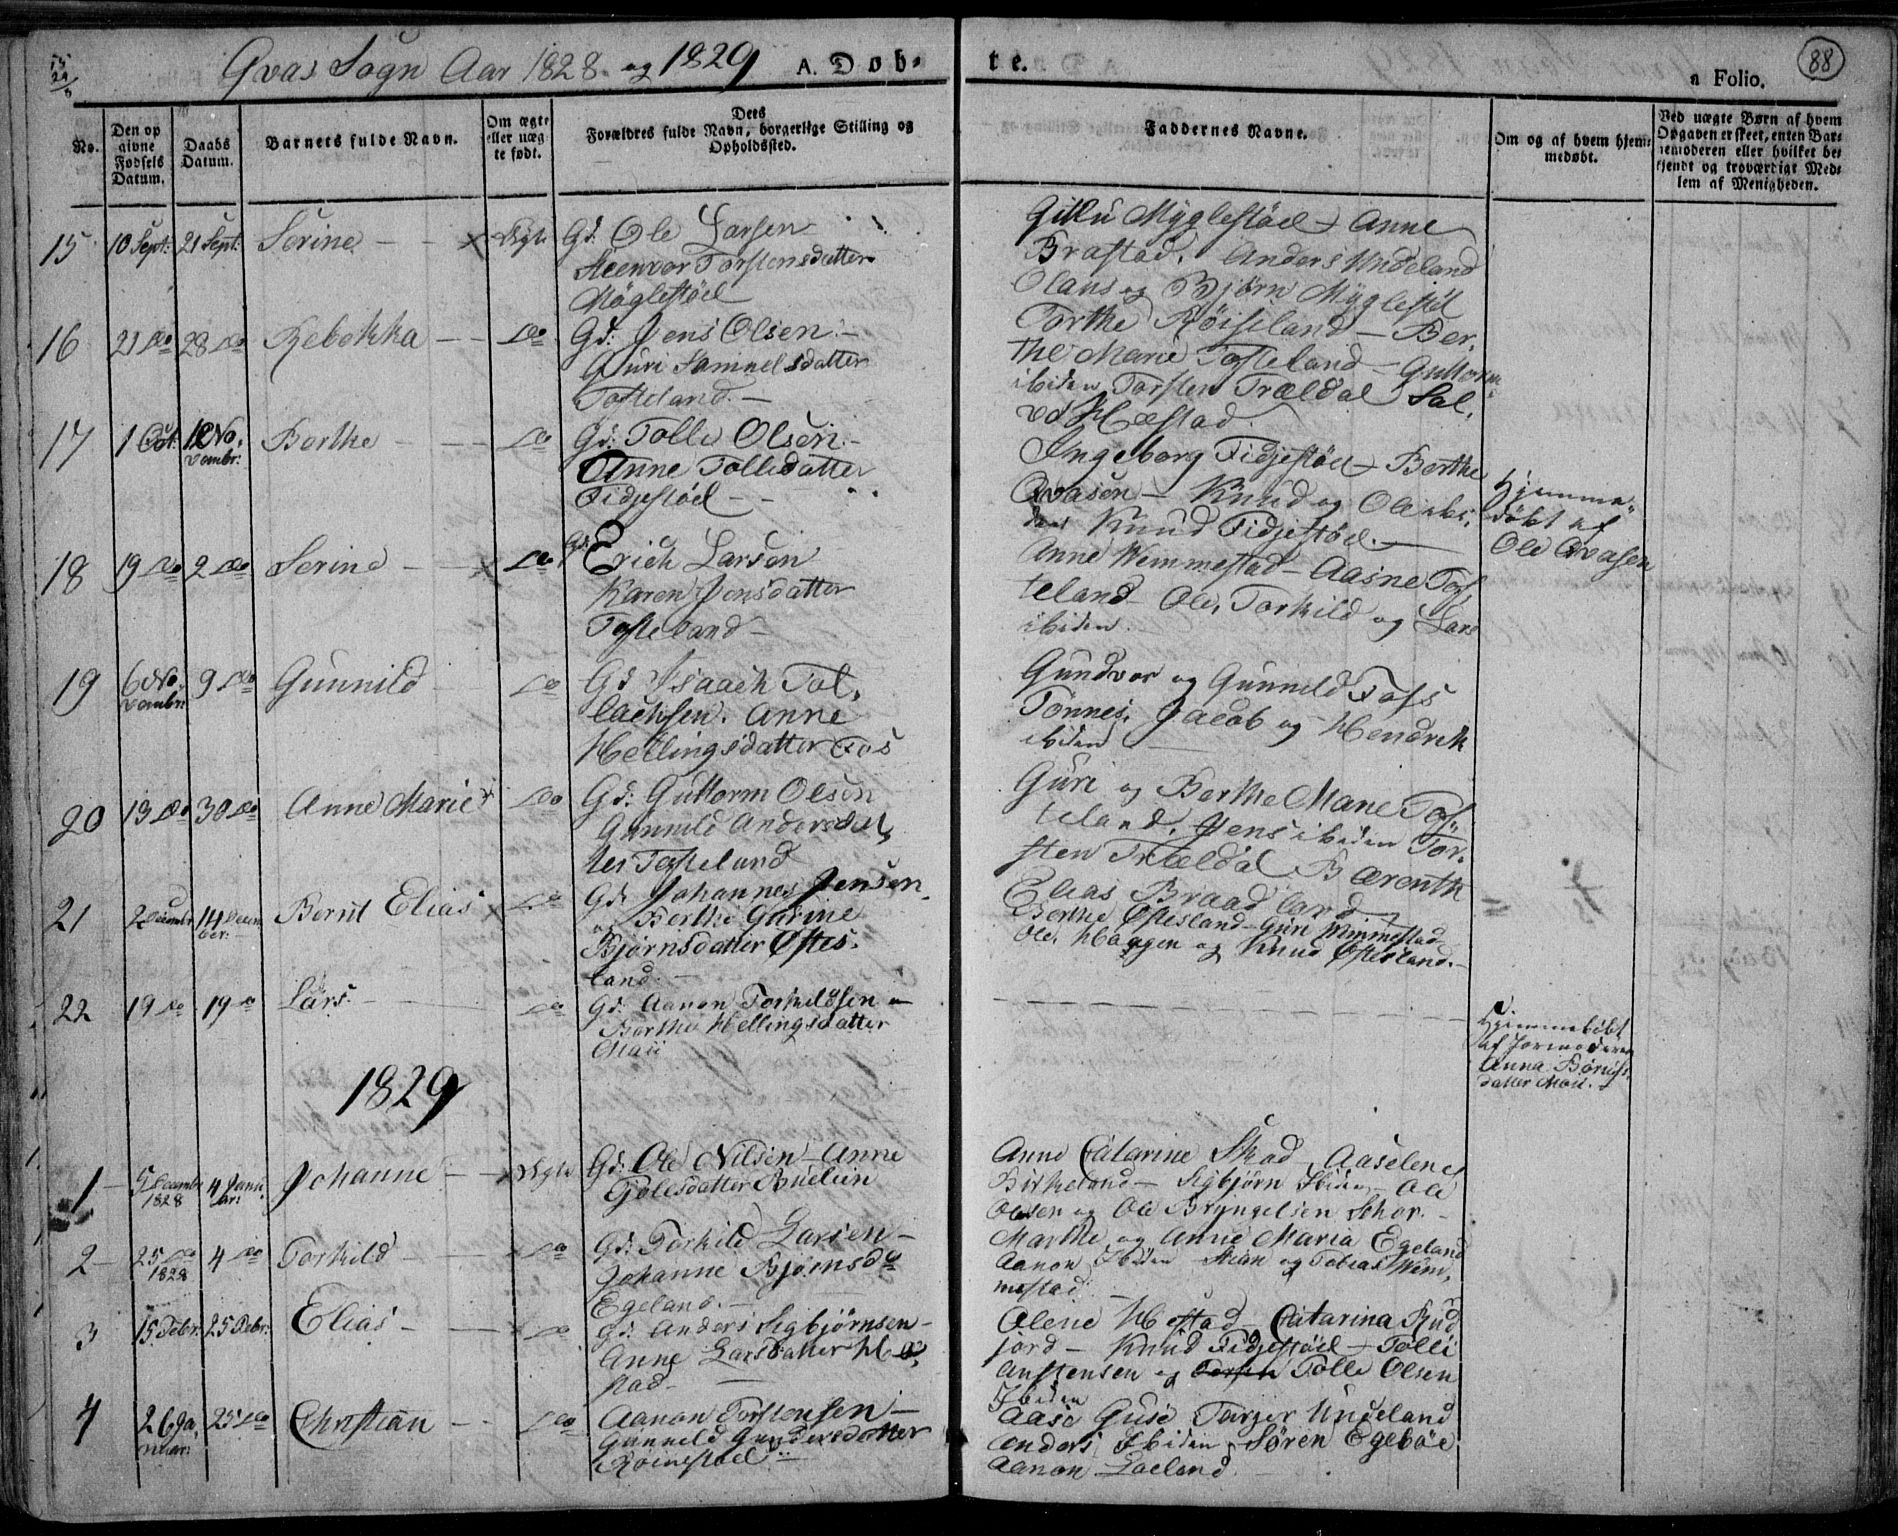 Gvas Sogn Aar 1828 og 1829 A. Døb-
te. n Folio. 88
No.
Den op
givne
Fødsels
Datum.
Daabs
Datum.
Barnets fulde Navn.
Om ægte
eller uæg
te født.
Dets
Forældres fulde Navn, borgerlige Stilling og
Opholdssted.
Faddernes Navne.
Om og af hvem hjem-
medøbt.
Ved uægte Børn af hvem
Opgaven er skeet, enten Bar-
nemoderen eller hvilket be-
kjendt og troværdigt Med-
lem af Menigheden.
15 10 Sept: 21 Sept: Serine Ægte Gd: Ole Larsen
Steenvor Torstensdatter
Møglestøel
Mÿglestøel Anne
Brastad. Anders Undeland
Olaus og Bjørn Mÿglestøl
16 21 do 28 do Rebekka do Gd: Jens Olsen
Guri Samuelsdatter
Tosteland.
Torthe Røiseland - Ber-
the Marie Tosteland - Guttorm
ibiden Torsten Trældal Sal-
ve Hæstad.
17 1 Oct: 12 No-
vembr: Berthe do Gd: Tolle Olsen
Anne Tollesdatter
Fidjestøel
Ingeborg Fidjestøel Berthe
Qvasen - Knud og Ole ibi-
den Knud Fidjestøel.
Hjemme-
døbt af
Ole Qvasen
18 19 do 2 do Serine do Gd: Erich Larsen
Karen Jensdatter
Tosteland
Anne Wemmestad - Aasne Tos-
teland - Ole, Torkild og Lars
ibiden.
19 6 No-
vembr: 9 do Gunnild do Gd: Isaach Tol-
lachsen. Anne
Hellingsdatter Fos
Gundvor og Gunneld Foss
Tønnes, Jacob og Hendrik
ibiden
20 13 do 30 do Anne Marie do Gd: Guttorm Olsen
Gunnild Andersdat-
ter Tosteland
Guri og Berthe Marie Tos-
teland, Jens ibiden Tor-
sten Trældal Bærenth
21 2 Decembr 14 Decem-
ber: Bernt Elias do Gd: Johannes Jensen
og Berthe Gurine
Bjørnsdatter Øftes-
land.
Elias Braadland
Berthe Øftesland - Guri Wemmestad
Ole, Haagen og Knud Øftesland.
22 19 do 19 do Lars do Gd: Aanon Torkildsen
Berthe Hellingsdatter
Moii
Hjemmedøbt
af Jormoderen
Anna
datter Moii.
1829
1 5 Decembr
1828 4 Janu-
ar: Johanne Ægte Gd: Ole Nilsen - Anne
Anne Catarine Skad Aaselene
Birkeland - Sigbjørn Ibiden - Ole
Olsen og Ole Bryngelsen
2 25 do
1828 4 do Torkild do Gd: Torkild Larsen
Johanne Bjørnsd
Egeland.
Marthe og Anne Maria Egeland
Aanon Ibiden Stian og Tobias Wem-
mestad
3 15 Febr: 25 Febr: Elias do Gd: Anders Sigbjørnsen
Anne Larsdatter Hæ-
stad
Alene Hæstad Catarina Rud
jord - Knud Fidjestøel - Tolle
Anstensen og Tolle Olsen
Ibiden
4 26 Ja-
nuar: 25 do Christian do Aanon Torstensen
Gunneld Gundersdatter
Roinestøel
Aase Guse Tarjer Undeland
Anders Ibiden Søren Egebøe
Aanon Loeland